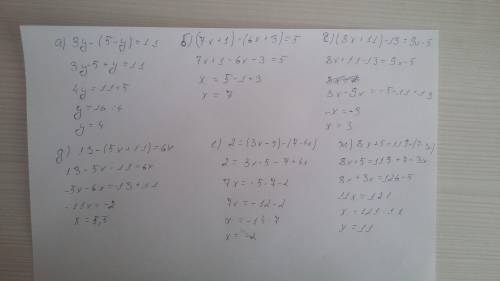 а) 3y-(5-y)=11
3y-5+y=11
4y=11+5
y=16:4
y=4
б) (7x+1)-(6x+3)=5
7x+1-6x-3=5
x=5-1+3
x=7
(8x+11)-13=9x-5
8x+11-13=9x-5
-x=-3
x=3
д) 13-(5x+11)=6x
13-5x-11=6x
-5x-6x=13+11
-11x=-2
x=5,5
е) 2=(3x-5)-(7-4x)
2=3x-5-7+4x
7x=-5-7-2
7x=-12-2
x=-14:7
x=-2
ж) 8x+5=119+(7-3x)
8x+5=119+7-3x
8x+3x=126-5
11x=121
x=121:11
x=11